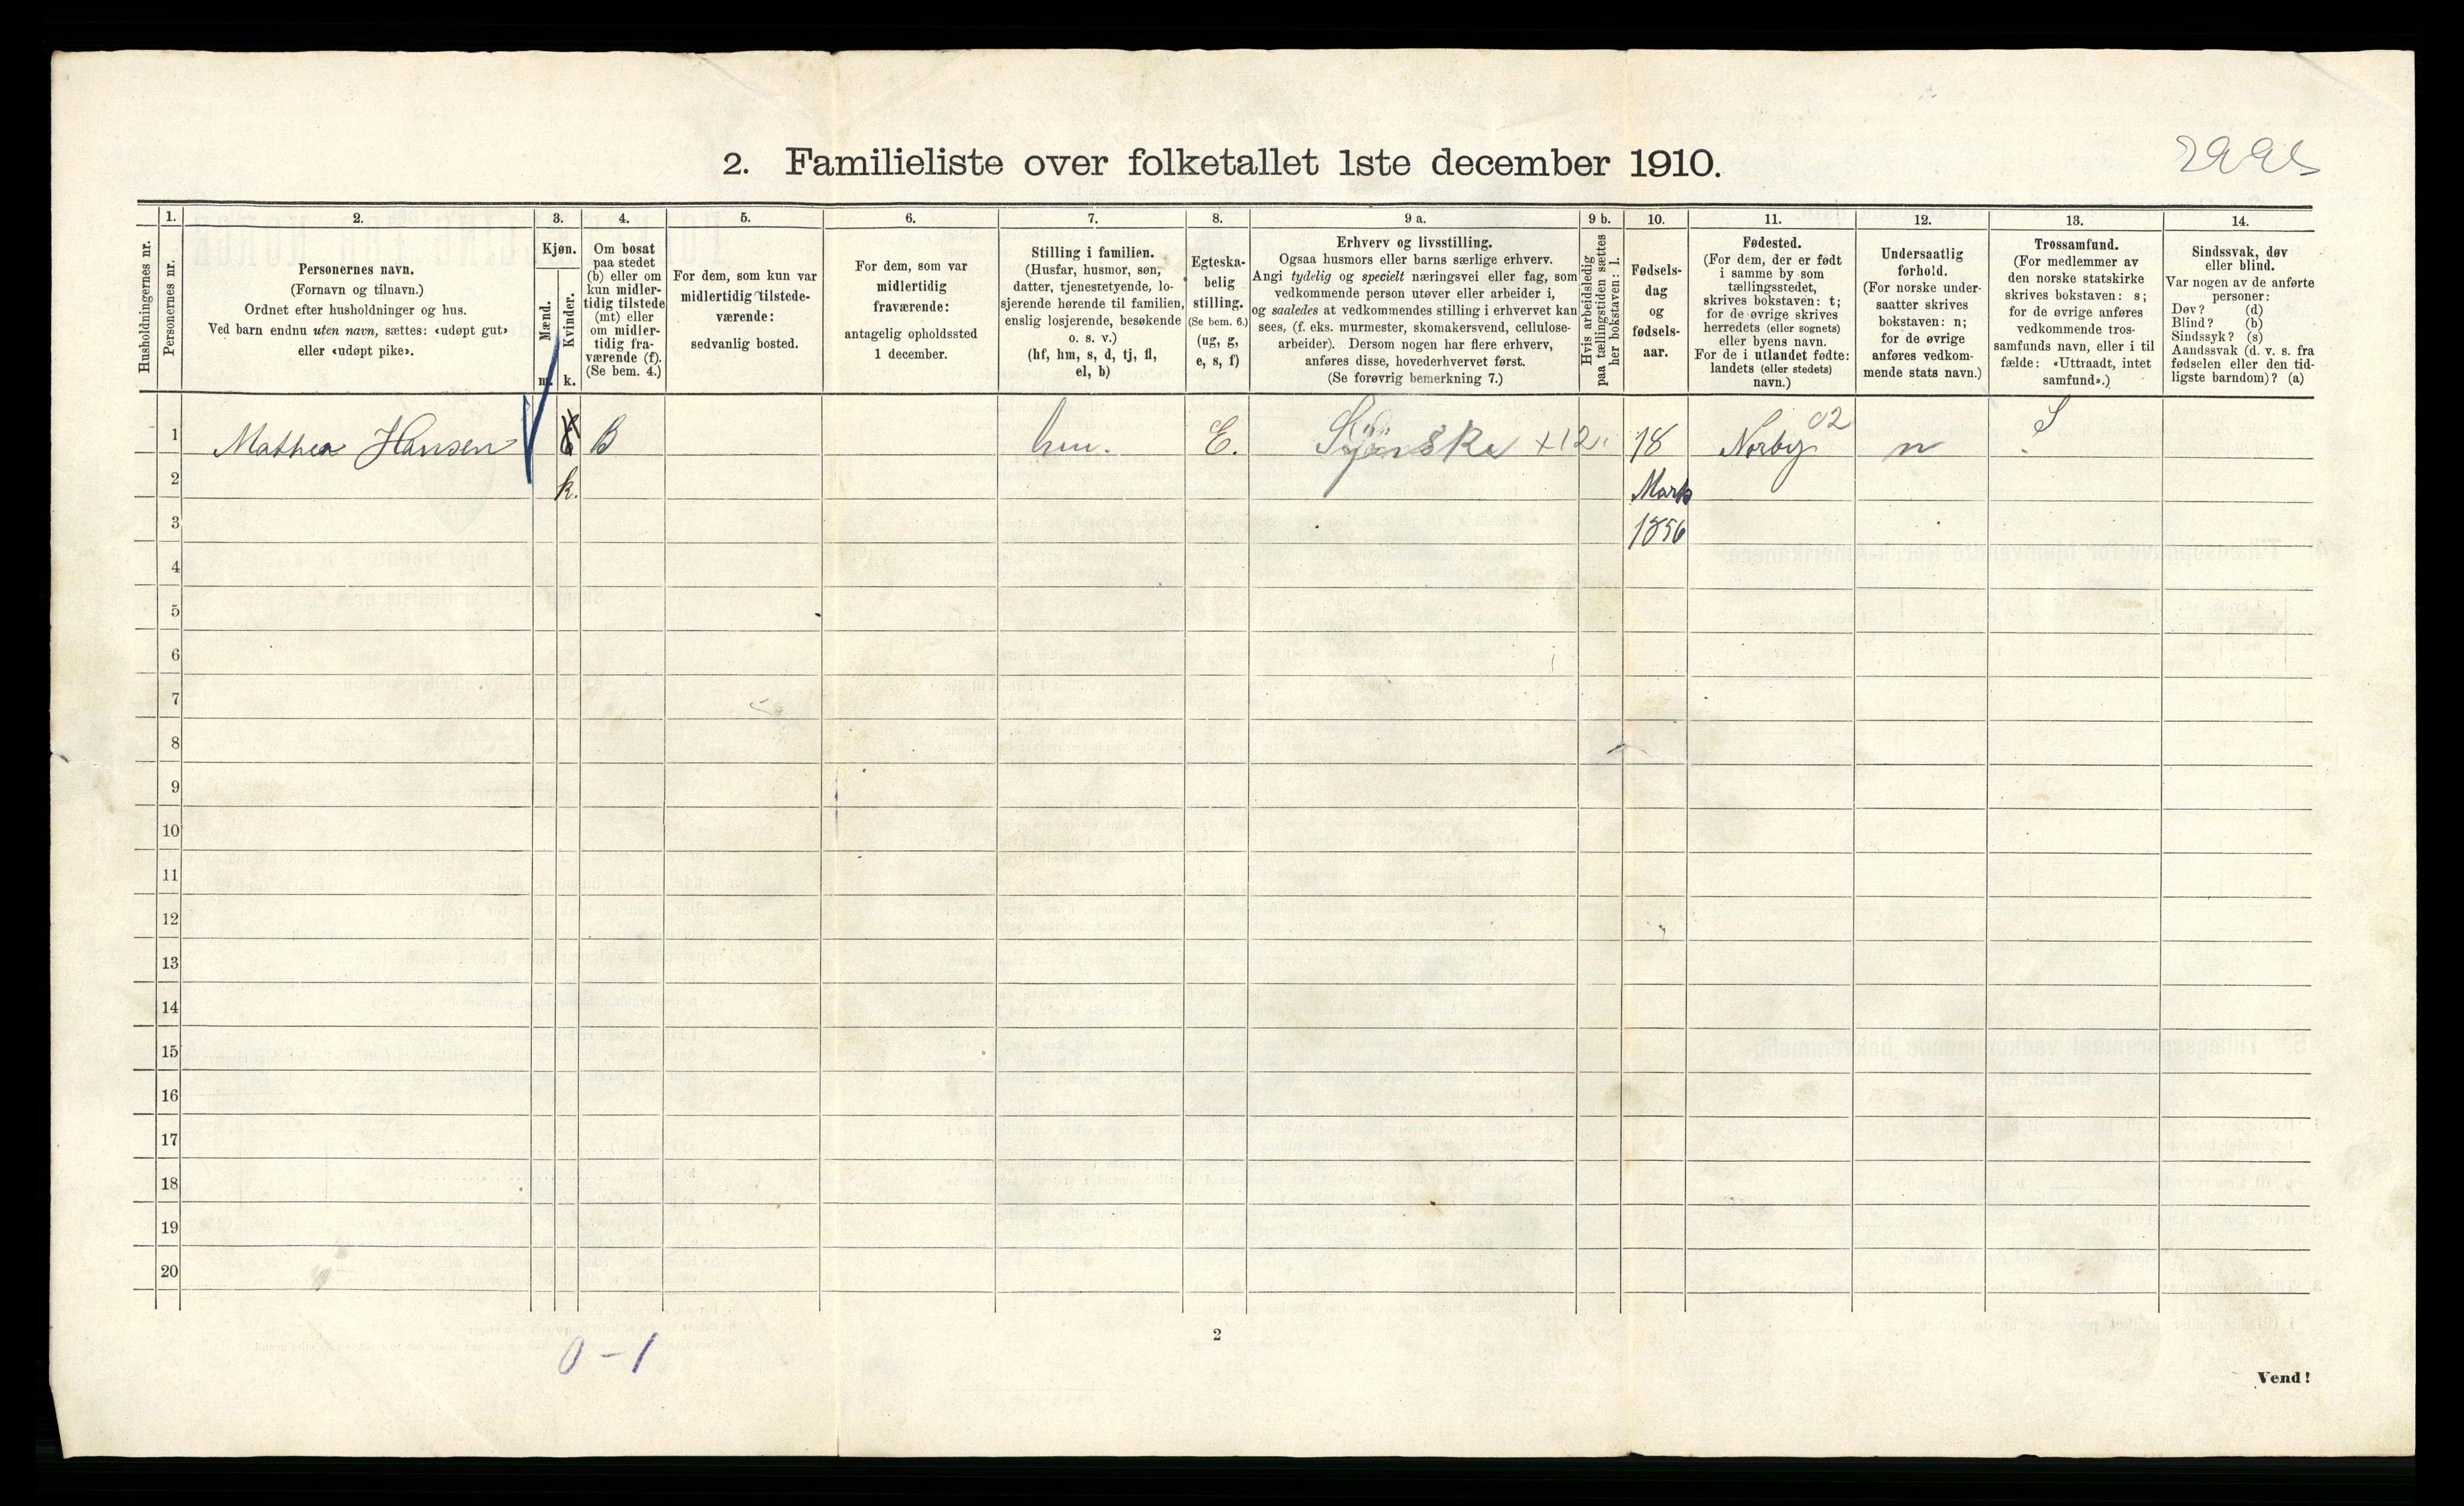 2. Familieliste over folketallet 1ste december 1910.
Husholdningernes nr.
1.
Personernes nr.
2.
Personernes navn.
(Fornavn og tilnavn.)
Ordnet efter husholdninger og hus.
Ved barn endnu uten navn, sættes: «udøpt gut»
eller «udøpt pike».
3.
Kjøn.
Mænd.
m.
Kvinder.
k.
4.
Om bosat
paa stedet
(b) eller om
kun midler-
tidig tilstede
(mt) eller
om midler-
tidig fra-
værende (f).
(Se bem. 4.)
5.
For dem, som kun var
midlertidig tilstede-
værende:
sedvanlig bosted.
6.
For dem, som var
midlertidig
fraværende:
antagelig opholdssted
1 december.
7.
Stilling i familien.
(Husfar, husmor, søn,
datter, tjenestetyende, lo-
sjerende hørende til familien,
enslig losjerende, besøkende
o. s. v.)
(hf, hm, s, d, tj, fl,
el, b)
8.
Egteska-
belig
stilling.
(Se bem. 6.)
(ug, g,
e, s, f)
9 a.
Erhverv og livsstilling.
Ogsaa husmors eller barns særlige erhverv.
Angi tydelig og specielt næringsvei eller fag, som
vedkommende person utøver eller arbeider i,
og saaledes at vedkommendes stilling i erhvervet kan
sees, (f. eks. murmester, skomakersvend, cellulose-
arbeider). Dersom nogen har flere erhverv,
anføres disse, hovederhvervet først.
(Se forøvrig bemerkning 7.)
9 b.
Hvis arbeidsledig
paa tællingstiden sættes
her bokstaven: l.
10.
Fødsels-
dag
og
fødsels-
aar.
11.
Fødested.
(For dem, der er født
i samme by som
tællingsstedet,
skrives bokstaven: t;
for de øvrige skrives
herredets (eller sognets)
eller byens navn.
For de i utlandet fødte:
landets (eller stedets)
navn.)
12.
Undersaatlig
forhold.
(For norske under-
saatter skrives
bokstaven: n;
for de øvrige
anføres vedkom-
mende stats navn.)
13.
Trossamfund.
(For medlemmer av
den norske statskirke
skrives bokstaven: s;
for de øvrige anføres
vedkommende tros-
samfunds navn, eller i til
fælde: «Uttraadt, intet
samfund».)
14.
Sindssvak, døv
eller blind.
Var nogen av de anførte
personer:
Døv? (d)
Blind? (b)
Sindssyk? (s)
Aandssvak (d. v. s. fra
fødselen eller den tid-
ligste barndom)? (a)
1 Mathea Hansen B hm. E. +12. 18 Norby 02 n S
2 k. Marts
3 1856
4
5
6
7
8
9
10
11
12
13
14
15
16
17
18
19
20
0-1
2
Vend!